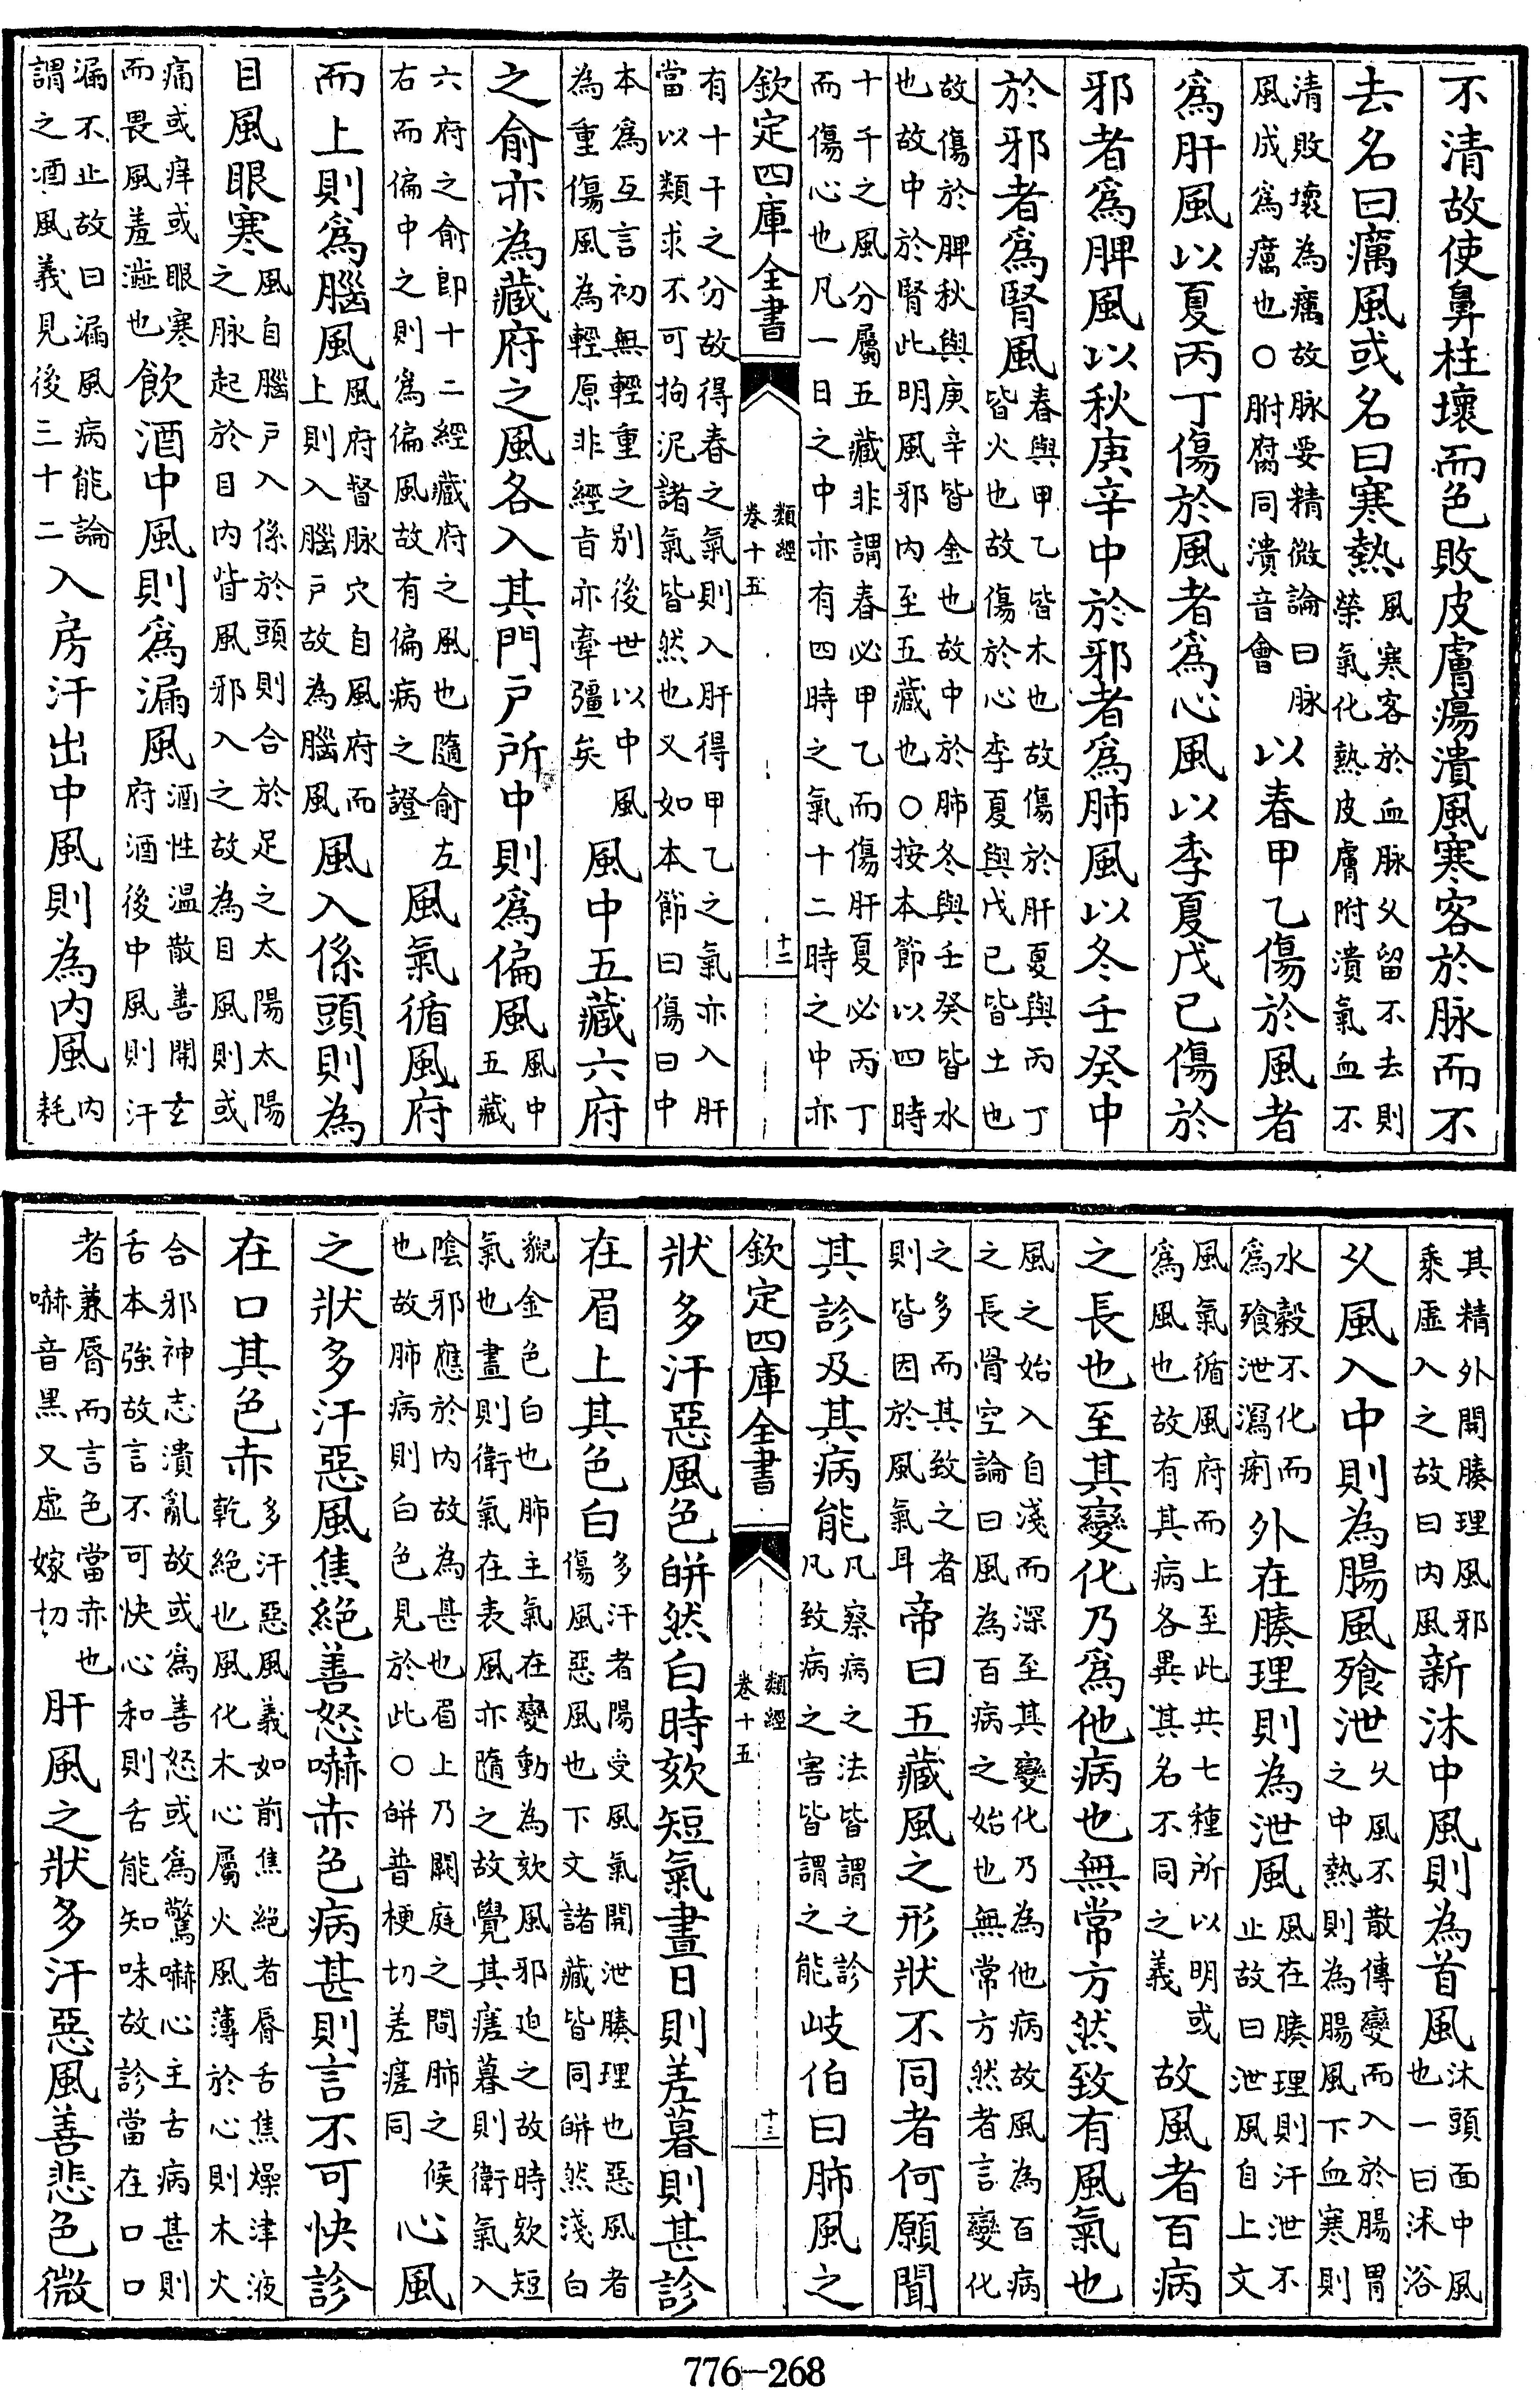 不清故使鼻柱壞而色敗皮膚瘍潰風寒客於脉而不
去名曰癘風或名曰寒熱風寒客於血脉久留不去則榮氣化熱皮膚胕潰氣血不
清敗壞為癘故脉要精微論曰脉風成為癘也○胕腐同潰音會以春甲乙傷於風者
為肝風以夏丙丁傷於風者為心風以季夏戊己傷於
邪者為脾風以秋庚辛中於邪者為肺風以冬壬癸中
於邪者為腎風春與甲乙皆木也故傷於肝夏與丙丁皆火也故傷於心季夏與戊己皆土也
故傷於脾秋與庚辛皆金也故中於肺冬與壬癸皆水也故中於腎此明風邪內至五藏也○按本節以四時
十千之風分屬五藏非謂春必甲乙而傷肝夏必丙丁而傷心也凡一日之中亦有四時之氣十二時之中亦
欽定四庫全書 類經 卷十五 十二
有十干之分故得春之氣則入肝得甲乙之氣亦入肝當以類求不可拘泥諸氣皆然也又如本節曰傷曰中
本為互言初無輕重之別後世以中風為重傷風為輕原非經旨亦牽彊矣風中五藏六府
之俞亦為藏府之風各入其門戶所中則為偏風風中五藏
六府之俞即十二經藏府之風也隨俞左右而偏中之則為偏風故有偏病之證風氣循風府
而上則為腦風風府督脉穴自風府而上則入腦戶故為腦風風入係頭則為
目風眼寒風自腦戶入係於頭則合於足之太陽太陽之脉起於目內眥風邪入之故為目風則或
痛或痒或眼寒而畏風羞澁也飲酒中風則為漏風酒性溫散善開玄府酒後中風則汗
漏不止故曰漏風病能論謂之酒風義見後三十二入房汗出中風則為內風內耗
其精外開腠理風邪乘虛入之故曰內風新沐中風則為首風沐頭面中風也一曰沐浴
久風入中則為腸風飧泄久風不散傳變而入於腸胃之中熱則為腸風下血寒則
水穀不化而為飧泄瀉痢外在腠理則為泄風風在腠理則汗泄不止故曰泄風自上文
風氣循風府而上至此共七種所以明或為風也故有其病各異其名不同之義故風者百病
之長也至其變化乃為他病也無常方然致有風氣也
風之始入自淺而深至其變化乃為他病故風為百病之長骨空論曰風為百病之始也無常方然者言變化
之多而其致之者則皆因於風氣耳帝曰五藏風之形狀不同者何願聞
其診及其病能凡察病之法皆謂之診凡致病之害皆謂之能岐伯曰肺風之
欽定四庫全書 類經 卷十五 十三
狀多汗惡風色皏然白時欬短氣晝日則差暮則甚診
在眉上其色白多汗者陽受風氣開泄腠理也惡風者傷風惡風也下文諸藏皆同皏然淺白
貌金色白也肺主氣在變動為欬風邪迫之故時欬短氣也晝則衛氣在表風亦隨之故覺其瘥暮則衛氣入
陰邪應於內故為甚也眉上乃闕庭之間肺之候也故肺病則白色見於此○皏普梗切差瘥同心風
之狀多汗惡風焦絕善怒嚇赤色病甚則言不可快診
在口其色赤多汗惡風義如前焦絕者脣舌焦燥津液乾絕也風化木心屬火風薄於心則木火
合邪神志潰亂故或為善怒或為驚嚇心主舌病甚則舌本強故言不可快心和則舌能知味故診當在口口
者兼脣而言色當赤也嚇音黑又虛嫁切肝風之狀多汗惡風善悲色微
776-268